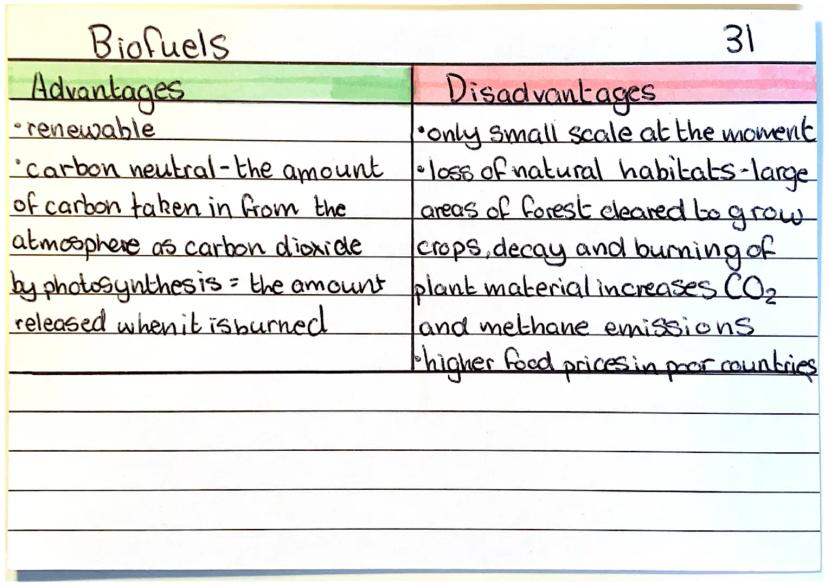 Biofuels 31
Advantages
•renewable
•carbon neutral-the amount
of carbon taken in from the
atmosphere as carbon dioxide
by photosynthesis = the amount
released when it is burned
Disadvantages
•only small scale at the moment
•loss of natural habitats-large
areas of forest cleared to grow
crops, decay and burning of
plant material increases CO₂
and methane emissions
•higher food prices in poor countries